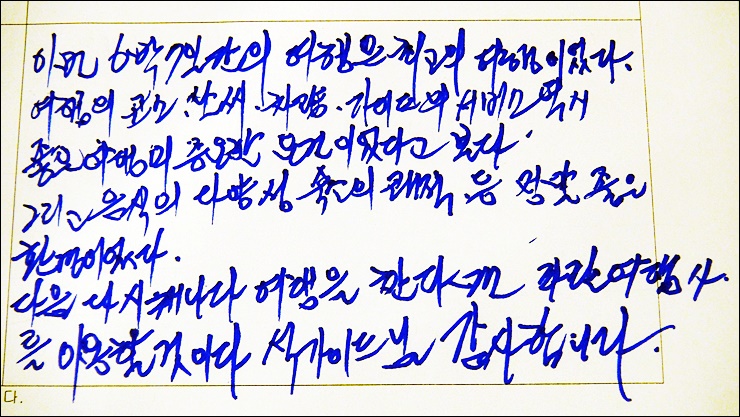 이번 6박7일간의 여행은 최고의 여행이었다.
여행의 코스. 날씨. 차량. 가이드의 서비스 역시
좋은 여행의 중요한 요건이었다고 본다
그리고 음식의 다양성 숙소의 쾌적 등 정말 좋은
환경이었다.
다음 다시 캐나다 여행을 간다면 파란여행사.
를 이용할것이다 가이드님 감사합니다.
다.